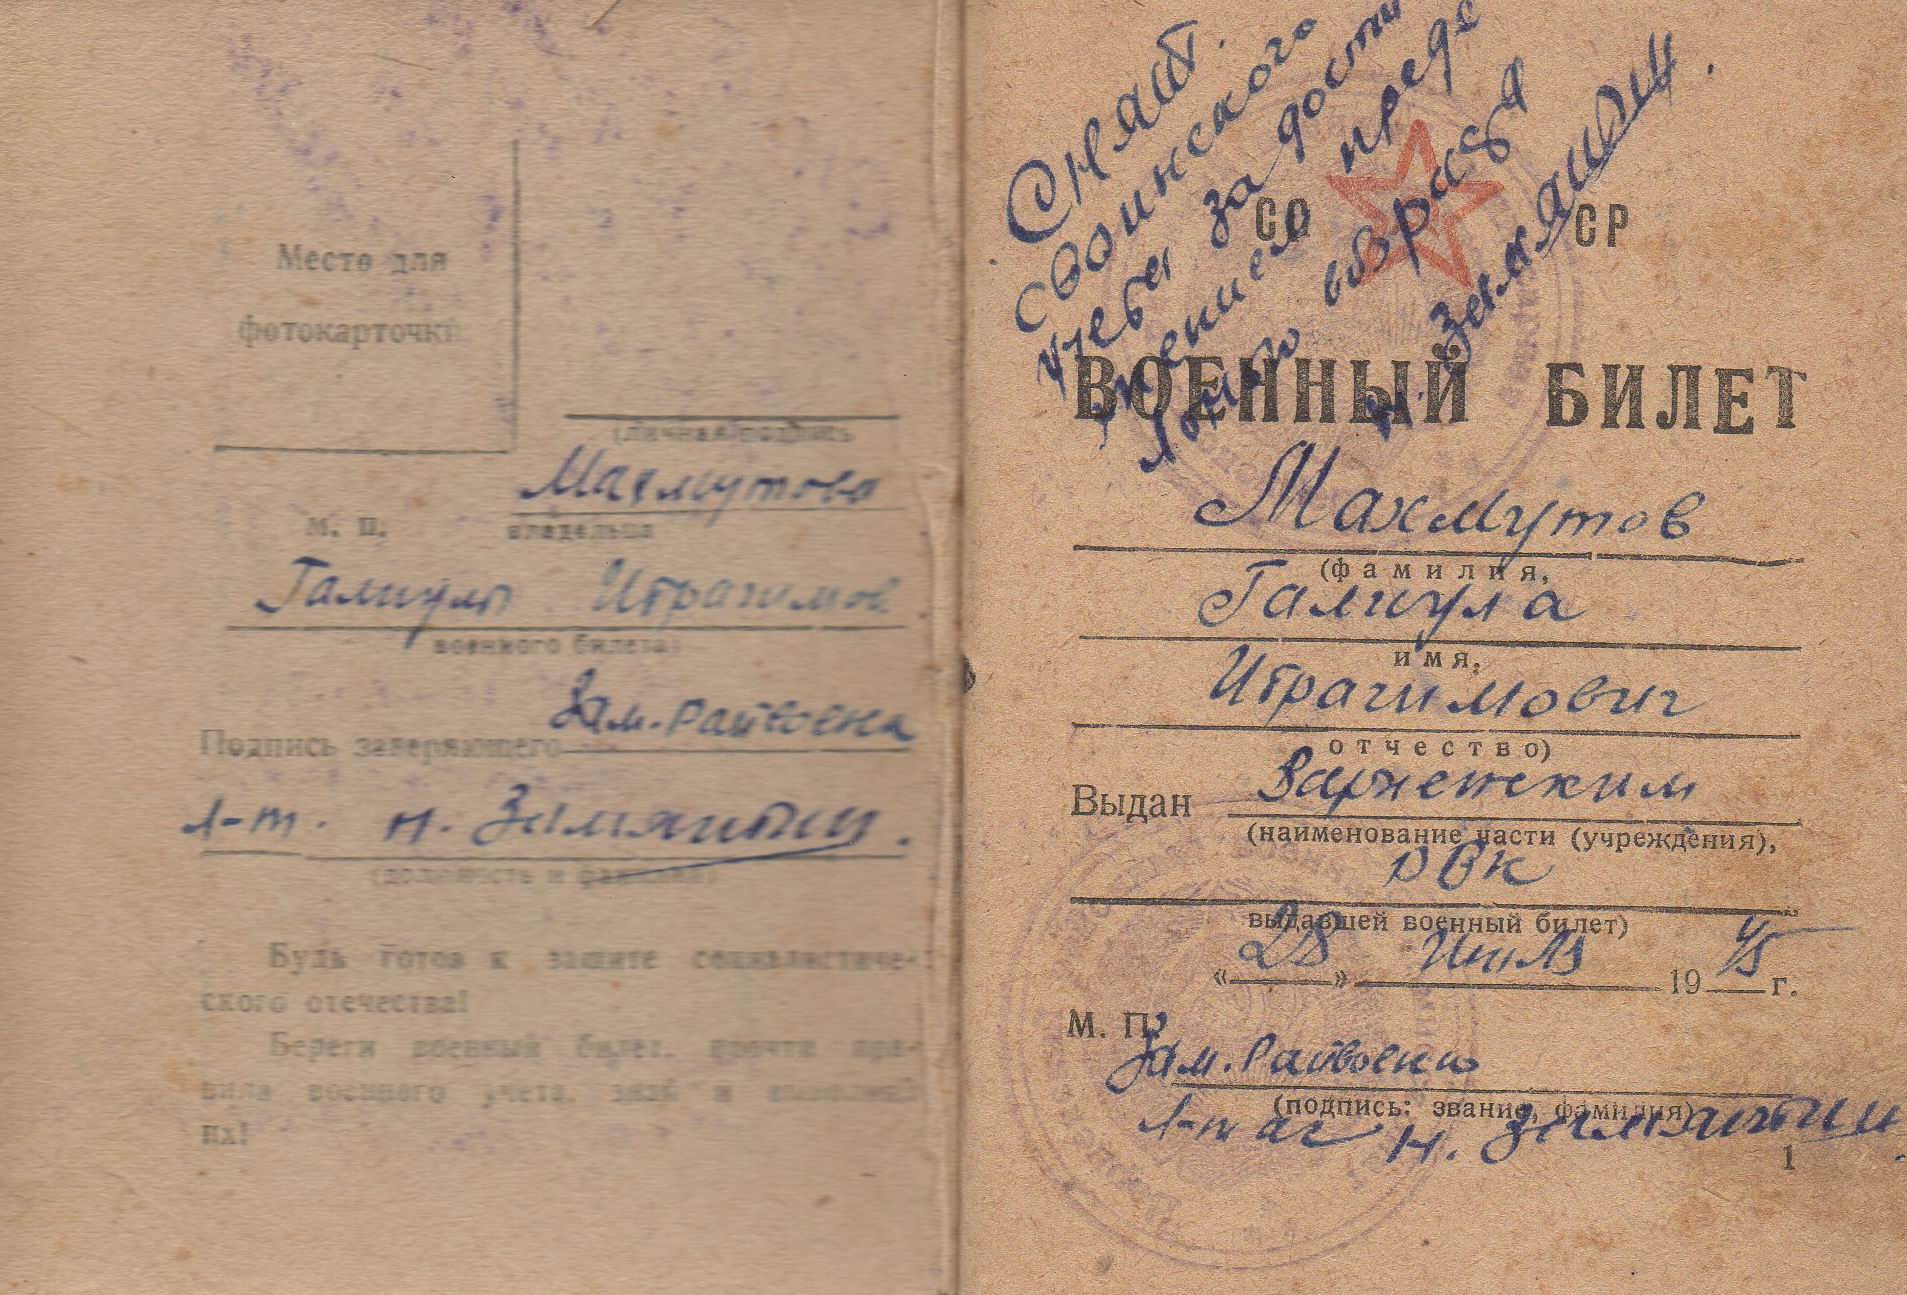 Место для
фотокарточки
(личная подпись
Махмутова
М. П.
владельца
Галиулы Ибрагимов
военного билета)
Подпись заверяющего Зам. Райвоенк
л-т. Н. Замятин.
(должность и фамилия)
Будь готов к защите социалистиче-
ского отечества!
Береги военный билет, прочти пра-
вила военного учета, знай и выполняй
их!
Снят.
с воинского
учета за дости
жением преде
льного возраста
Н. Замятин.
СССР
ВОЕННЫЙ БИЛЕТ
Махмутов
(фамилия,
Галиула
имя,
Ибрагимович
отчество)
Выдан Варненским
(наименование части (учреждения),
РВК
выдавшей военный билет)
«28» Июля 1945 г.
М. П.
Зам. Райвоенко
(подпись: звание, фамилия)
л-т Н. Замятин
1